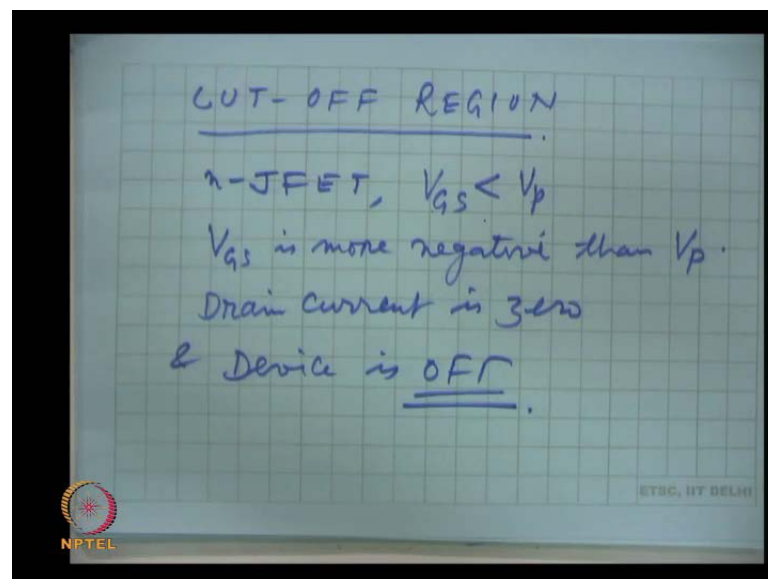 CUT-OFF REGION.
n-JFET, V_GS < V_p
V_GS is more negative than V_p.
Drain current is zero
& Device is OFF.
ETSC, IIT DELHI
NPTEL